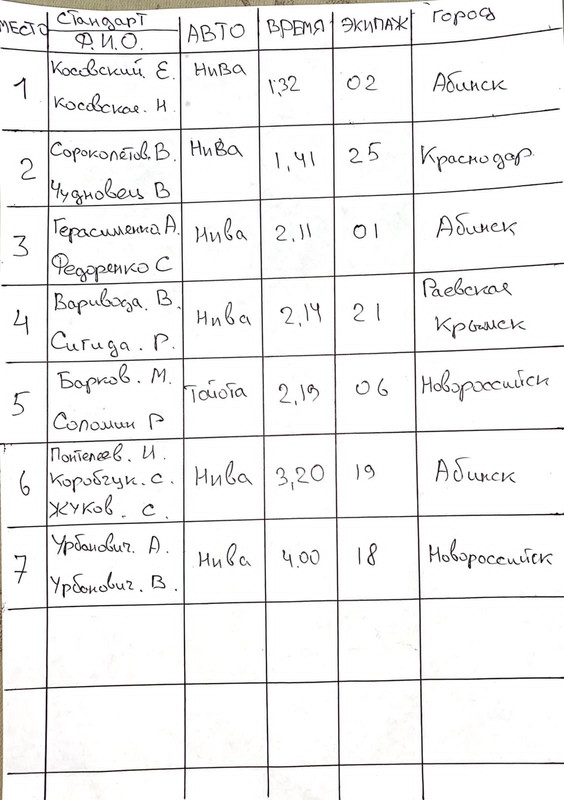 МЕСТО Стандарт Ф.И.О. АВТО ВРЕМЯ ЭКИПАЖ ГОРОД
1 Косовский. Е. НиВа 1,32 02 Абинск
Косовская. Н.
2 Сороколетов. В. НиВа 1,41 25 Краснодар
Чудновец В
3 Герасименко А. Нива 2,11 01 Абинск
Федоренко С
4 Варивода. В. Нива 2,14 21 Раевская
Сигида. Р. Крымск
5 Барков. М. Тойота 2,19 06 Новороссийск
Соломин Р
6 Пантелеев. И. Нива 3,20 19 Абинск
Коробчук. С.
ЖУКОВ. С.
7 Урбанович. А. Нива 4.00 18 Новороссийск
Урбанович. В.